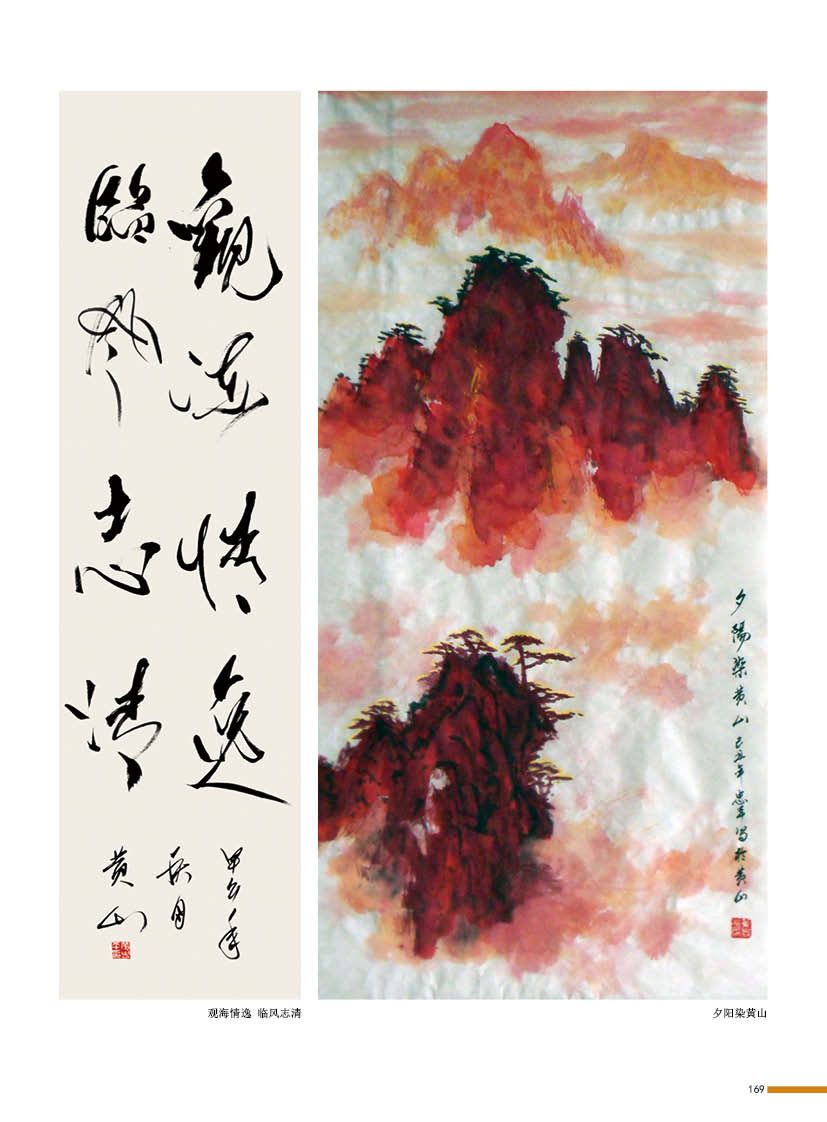 觀海情逸
臨風志清
甲午年
黄山
夕陽染黄山 己丑年 忠 写於黄山
观海情逸 临风志清
夕阳染黄山
169